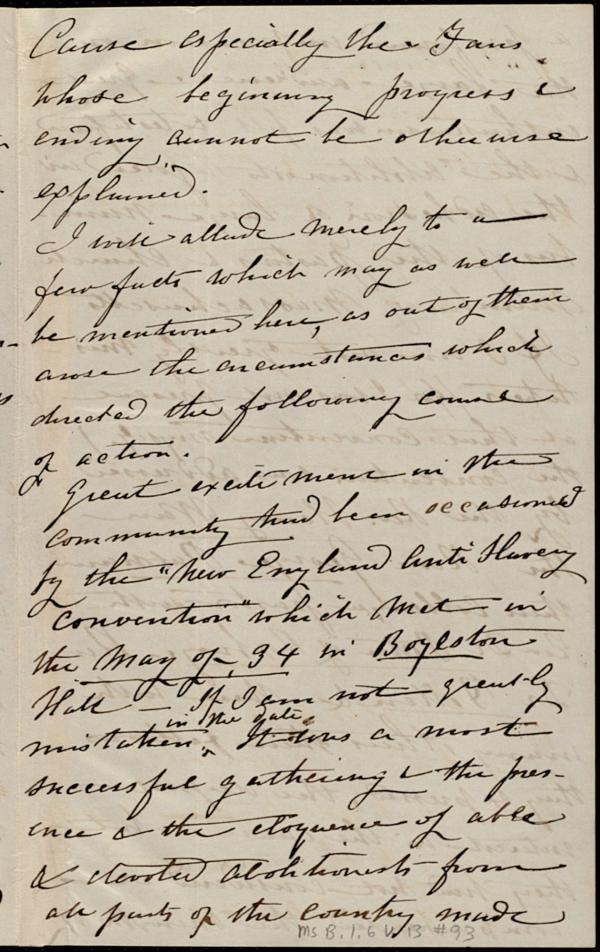 Cause especially the Fairs
whose beginning progress &
ending cannot be otherwise
explained.
I will allude merely to a
few facts which may as well
be mentioned here, as out of them
arose the circumstances which
directed the following course
of action.
Great excitement in the
community had been occasioned
by the "New England Anti Slavery
Convention" which met in
the May of 34 in Boylston
Hall — If I am not greatly
in the date
mistaken. It was a most
successful gathering & the pres-
ence & the eloquence of able
& devoted abolitionists from
all parts of the country made
Ms B.1.6 v.13 #93